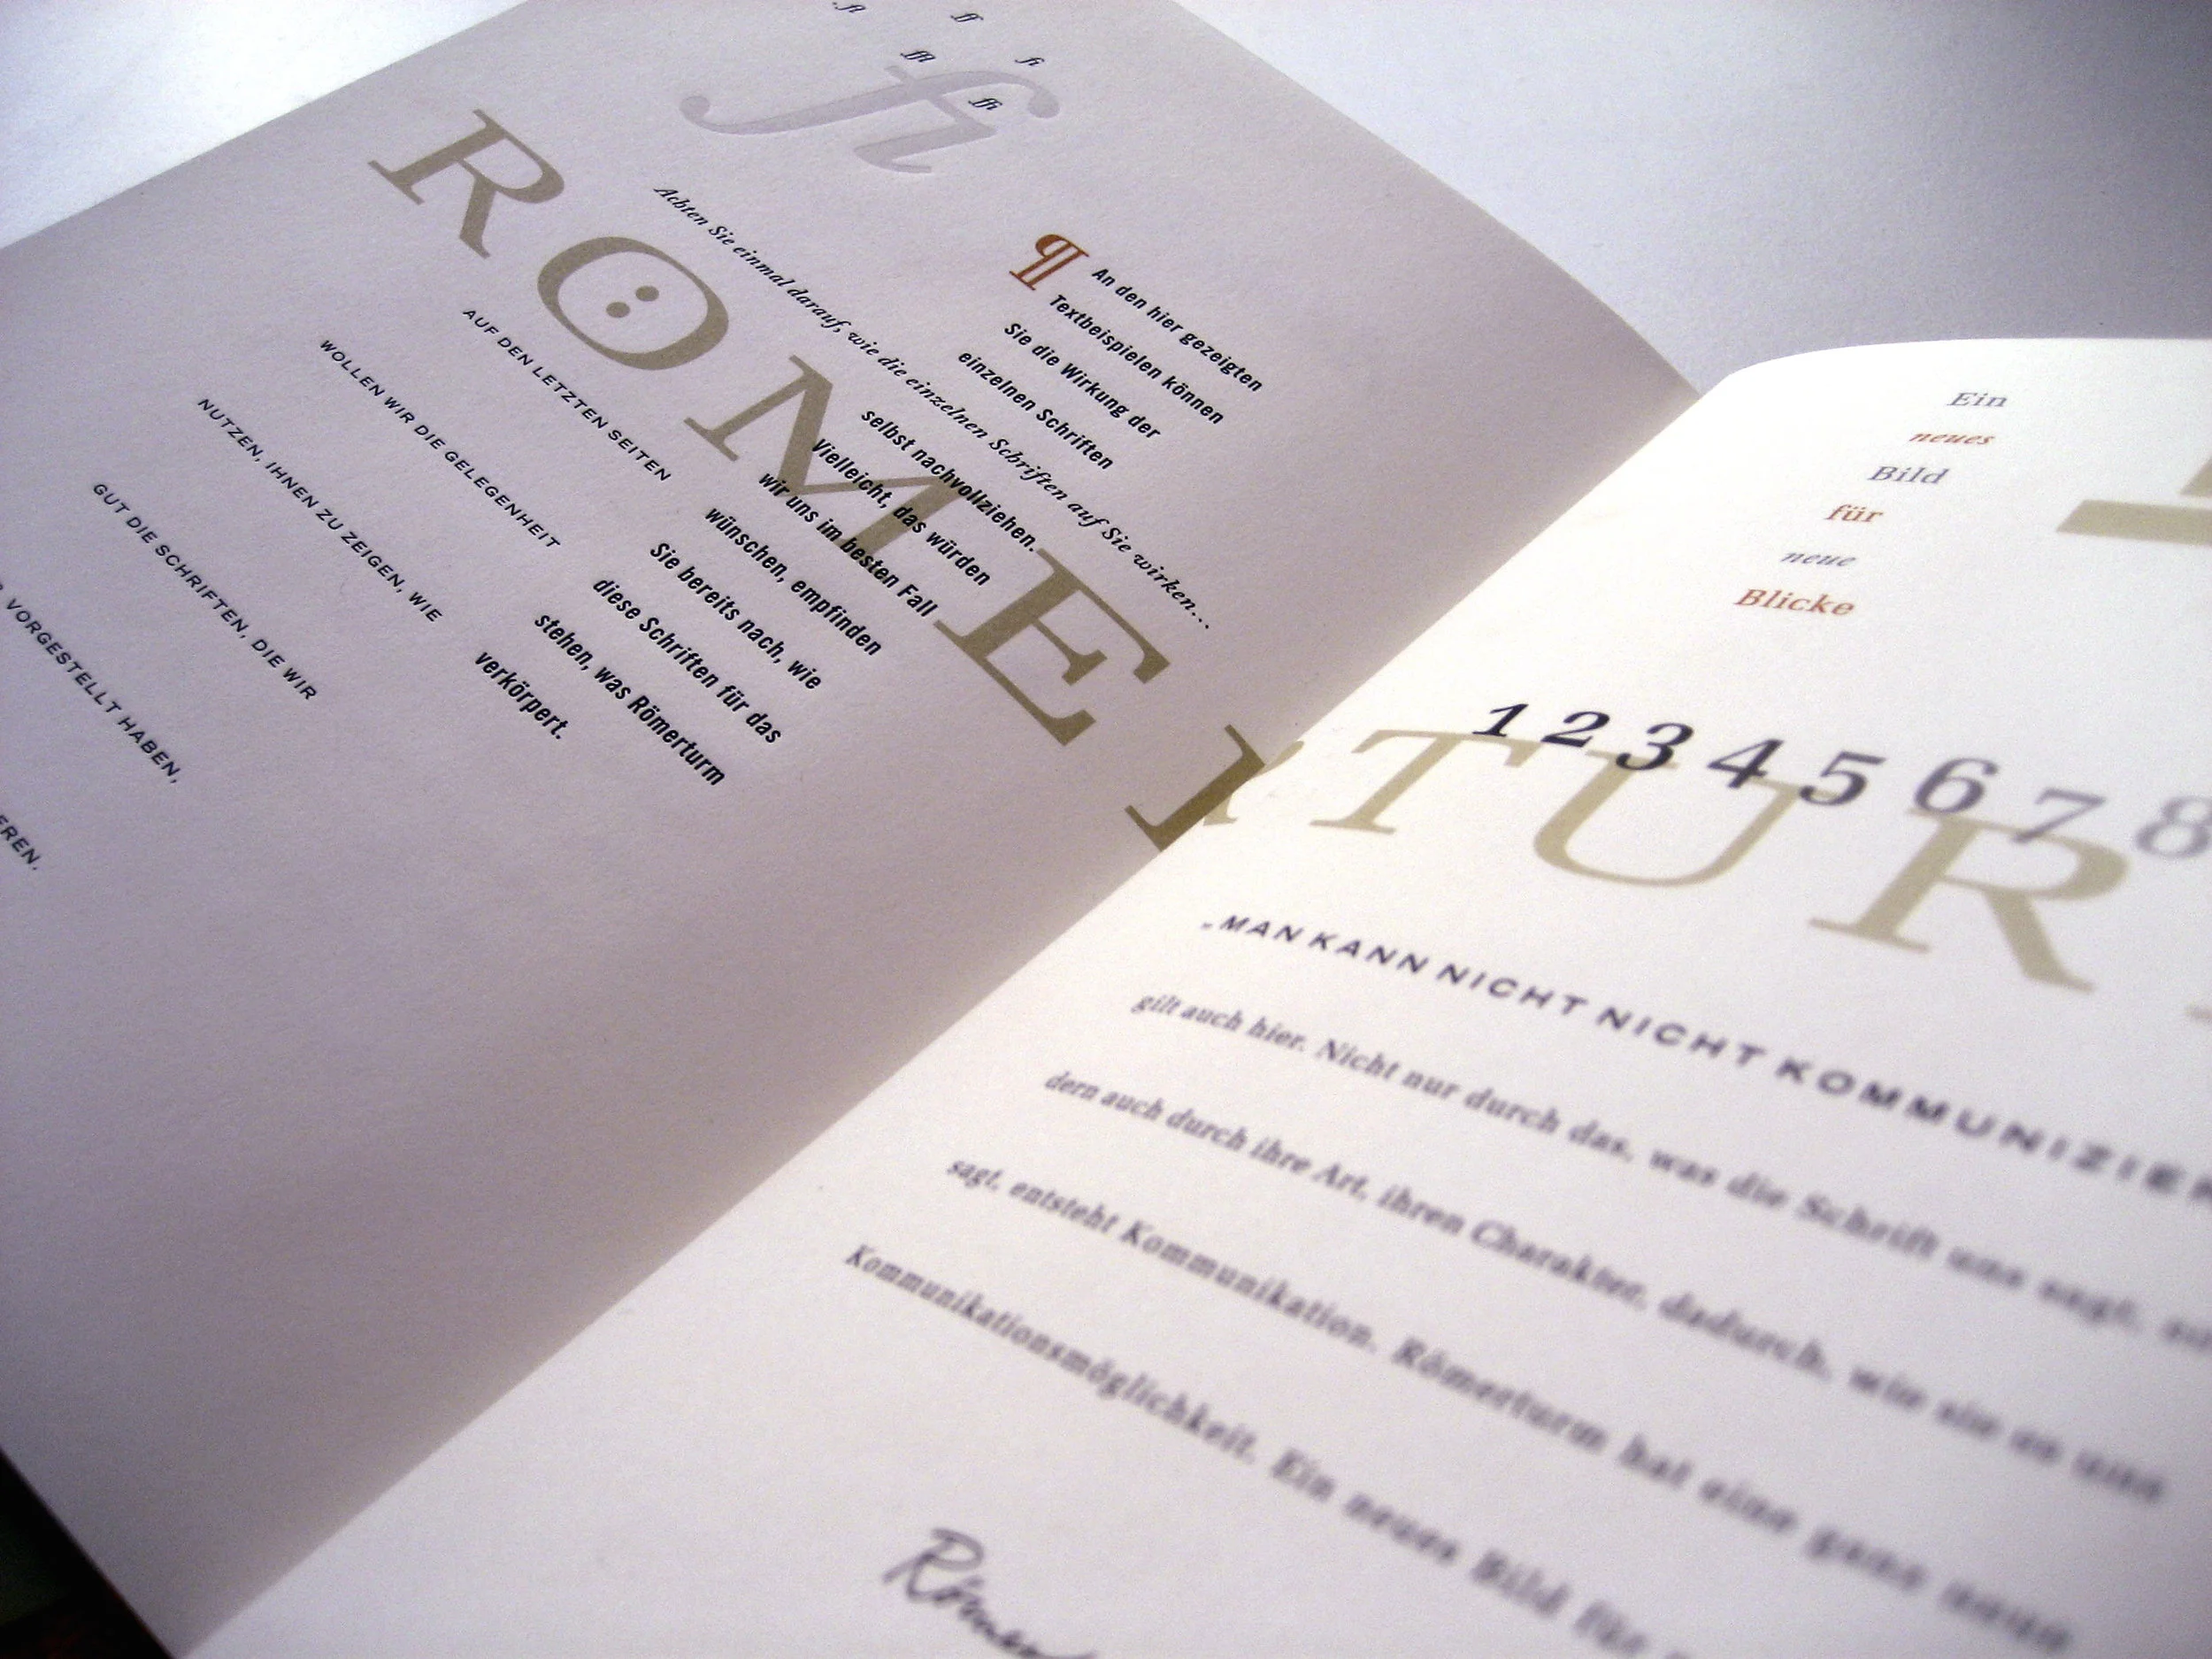 fl ff
ffl fi
ffi
fi
RÖMERTUR
Achten Sie einmal darauf, wie die einzelnen Schriften auf Sie wirken...
¶ An den hier gezeigten
Textbeispielen können
Sie die Wirkung der
einzelnen Schriften
selbst nachvollziehen.
Vielleicht, das würden
wir uns im besten Fall
wünschen, empfinden
Sie bereits nach, wie
diese Schriften für das
stehen, was Römerturm
verkörpert.
AUF DEN LETZTEN SEITEN
WOLLEN WIR DIE GELEGENHEIT
NUTZEN, IHNEN ZU ZEIGEN, WIE
GUT DIE SCHRIFTEN, DIE WIR
VORGESTELLT HABEN,
Ein
neues
Bild
für
neue
Blicke
1 2 3 4 5 6 7 8
„MAN KANN NICHT NICHT KOMMUNIZIER
gilt auch hier. Nicht nur durch das, was die Schrift uns sagt,
dern auch durch ihre Art, ihren Charakter, dadurch, wie sie es uns
sagt, entsteht Kommunikation. Römerturm hat eine ganz neue
Kommunikationsmöglichkeit. Ein neues Bild für